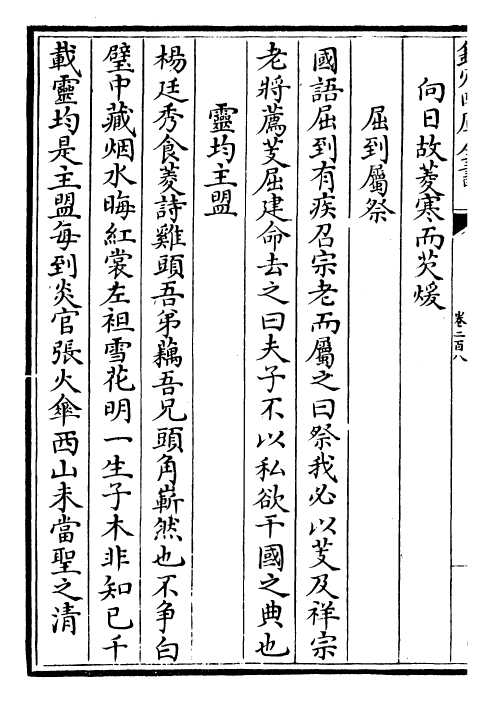 向日故菱寒而芡煖
屈到屬祭
國語屈到有疾召宗老而屬之曰祭我必以芰及祥宗
老將薦芰屈建命去之曰夫子不以私欲干國之典也
靈均主盟
楊廷秀食菱詩雞頭吾弟藕吾兄頭角嶄然也不争白
璧中藏烟水晦紅裳左袒雪花明一生子木非知已千
載靈均是主盟每到炎官張火傘西山未當聖之清
卷二百八